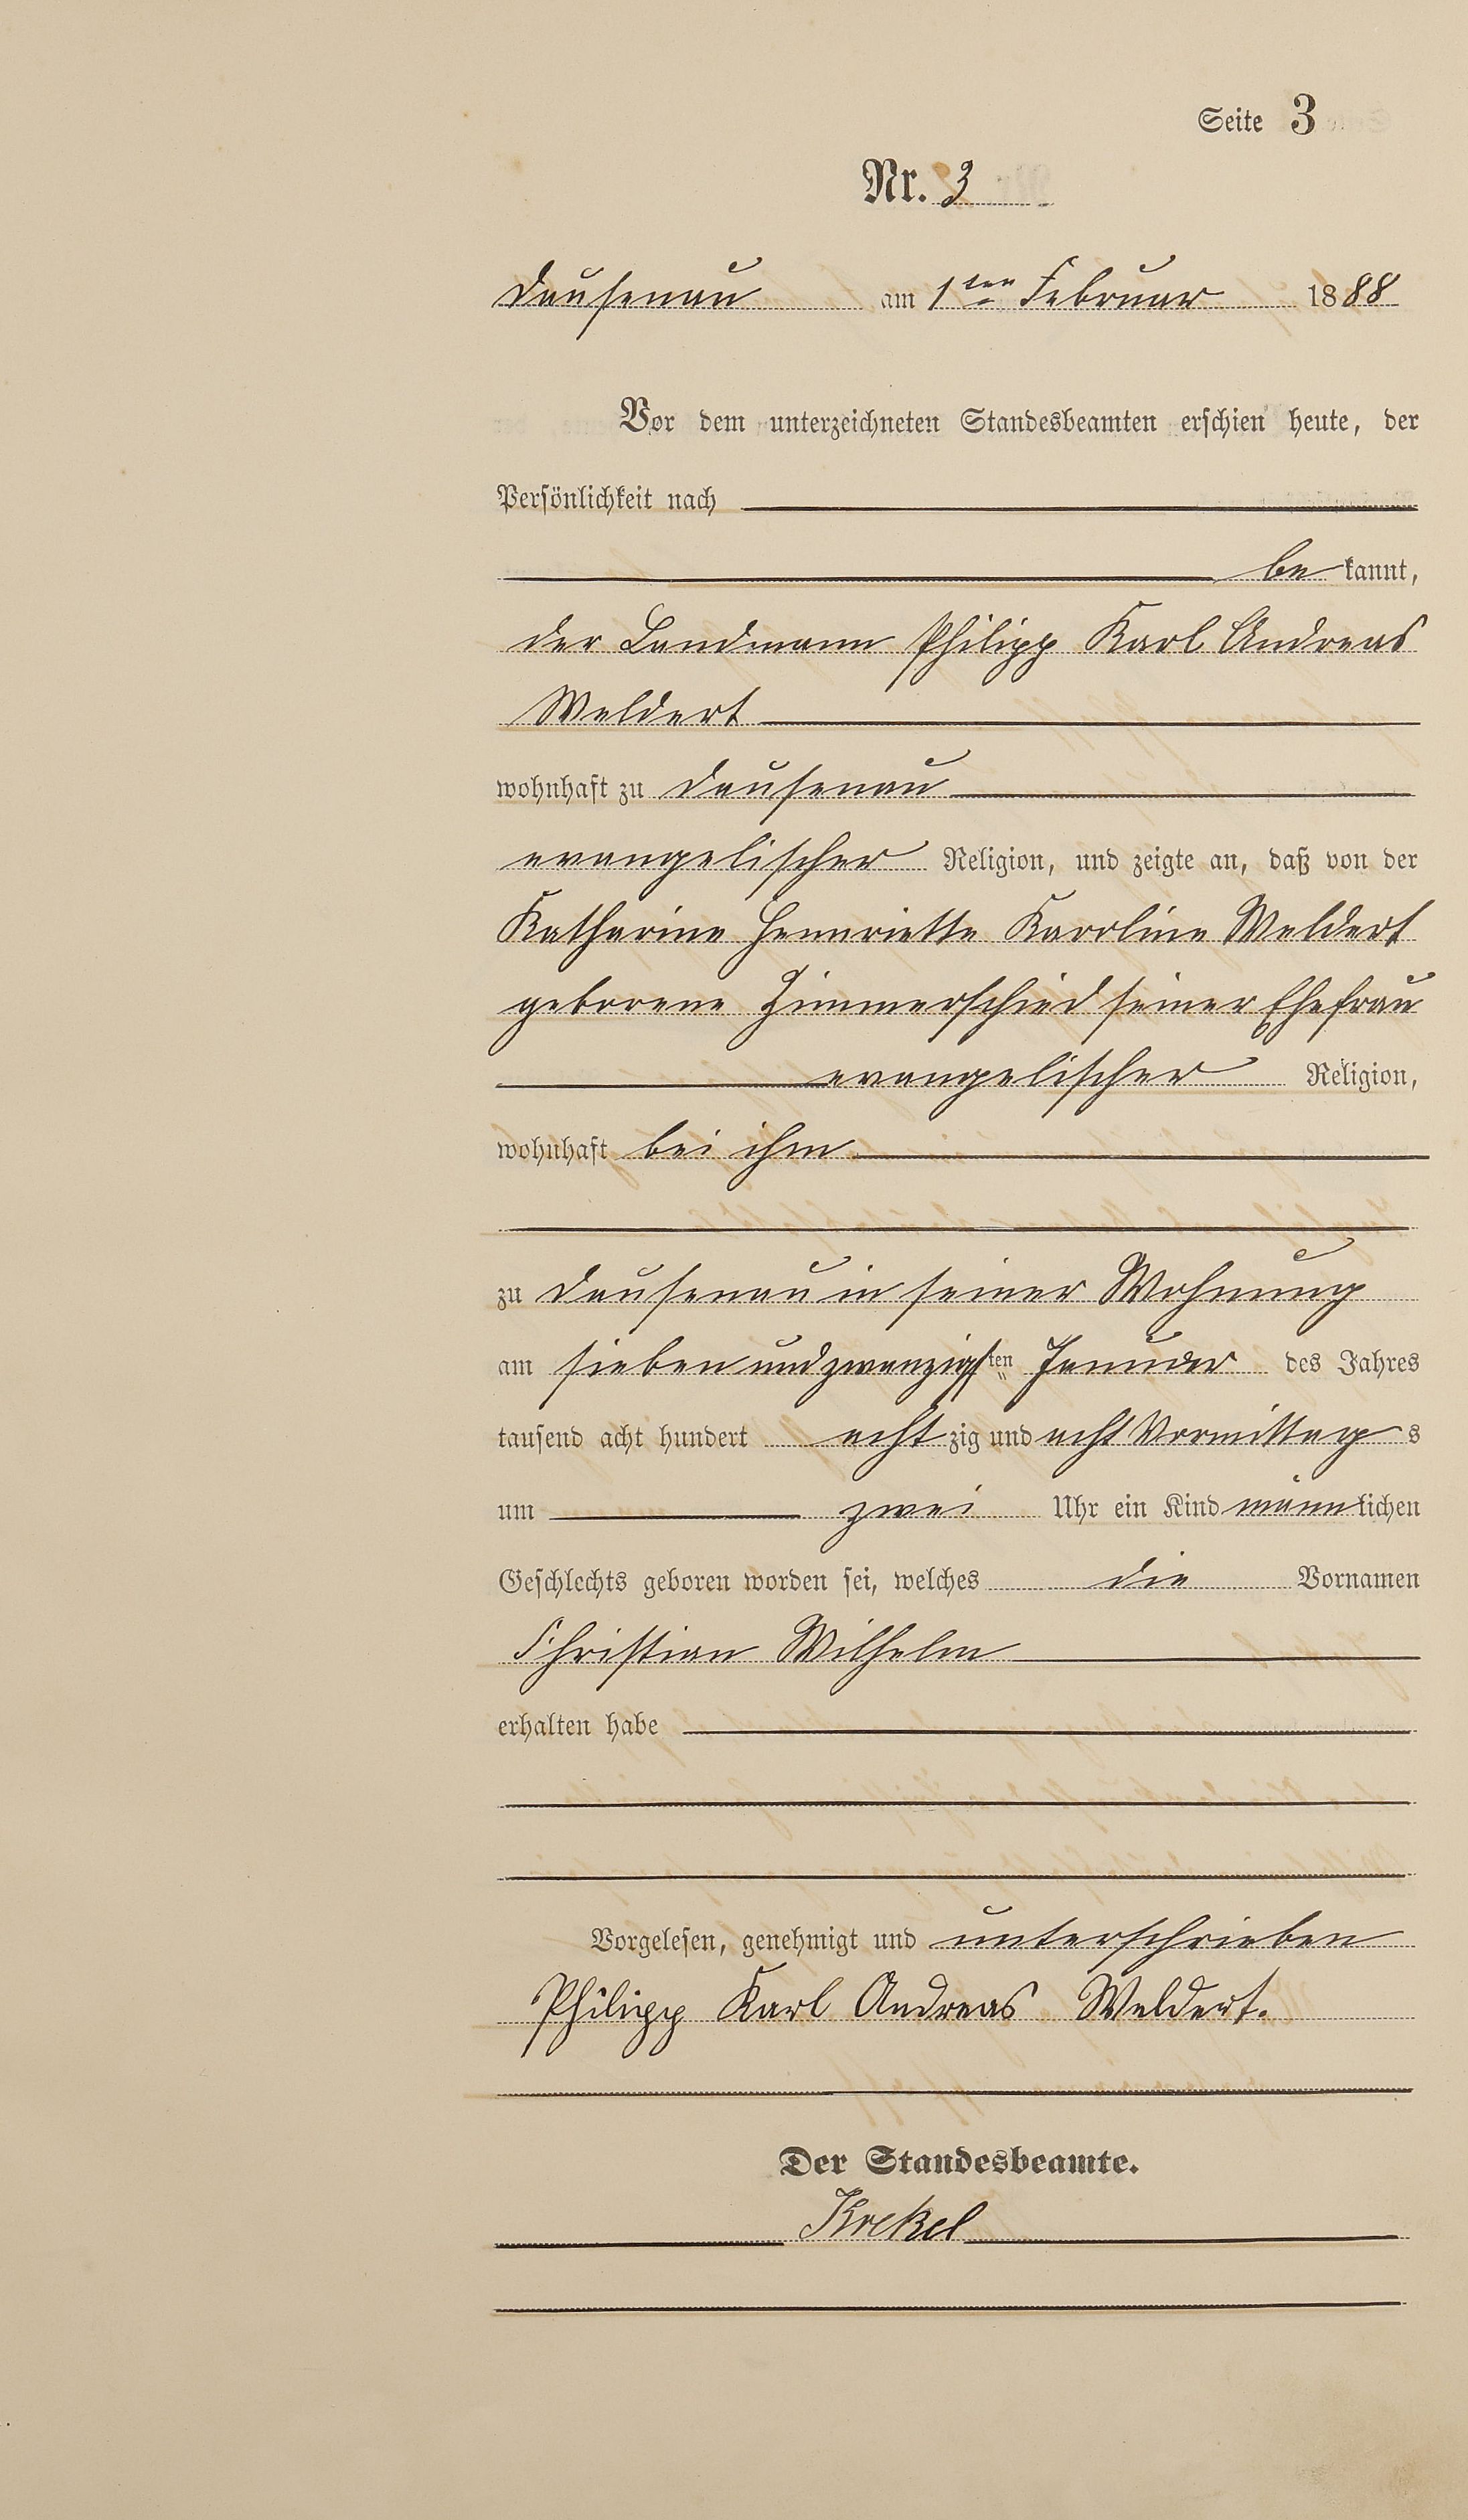 Seite 3
Nr. 3
Dausenau am 1ten Februar 1888
Vor dem unterzeichneten Standesbeamten erschien heute, der
Persönlichkeit nach
be kannt,
der Landmann Philipp Karl Andreas
Weldert
wohnhaft zu Dausenau
evangelischer Religion, und zeigte an, daß von der
Katharine Hennriette Karoline Weldert
geborene Zimmerschied seiner Ehefrau
evangelischer Religion,
wohnhaft bei ihm
zu Dausenau in seiner Wohnung
am sieben und zwanzigsten Januar des Jahres
tausend acht hundert acht zig und acht Vormittag s
um zwei Uhr ein Kind männ lichen
Geschlechts geboren worden sei, welches die Vornamen
Christian Wilhelm
erhalten habe
Vorgelesen, genehmigt und unterschrieben
Philipp Karl Andreas Weldert.
Der Standesbeamte.
Krekel